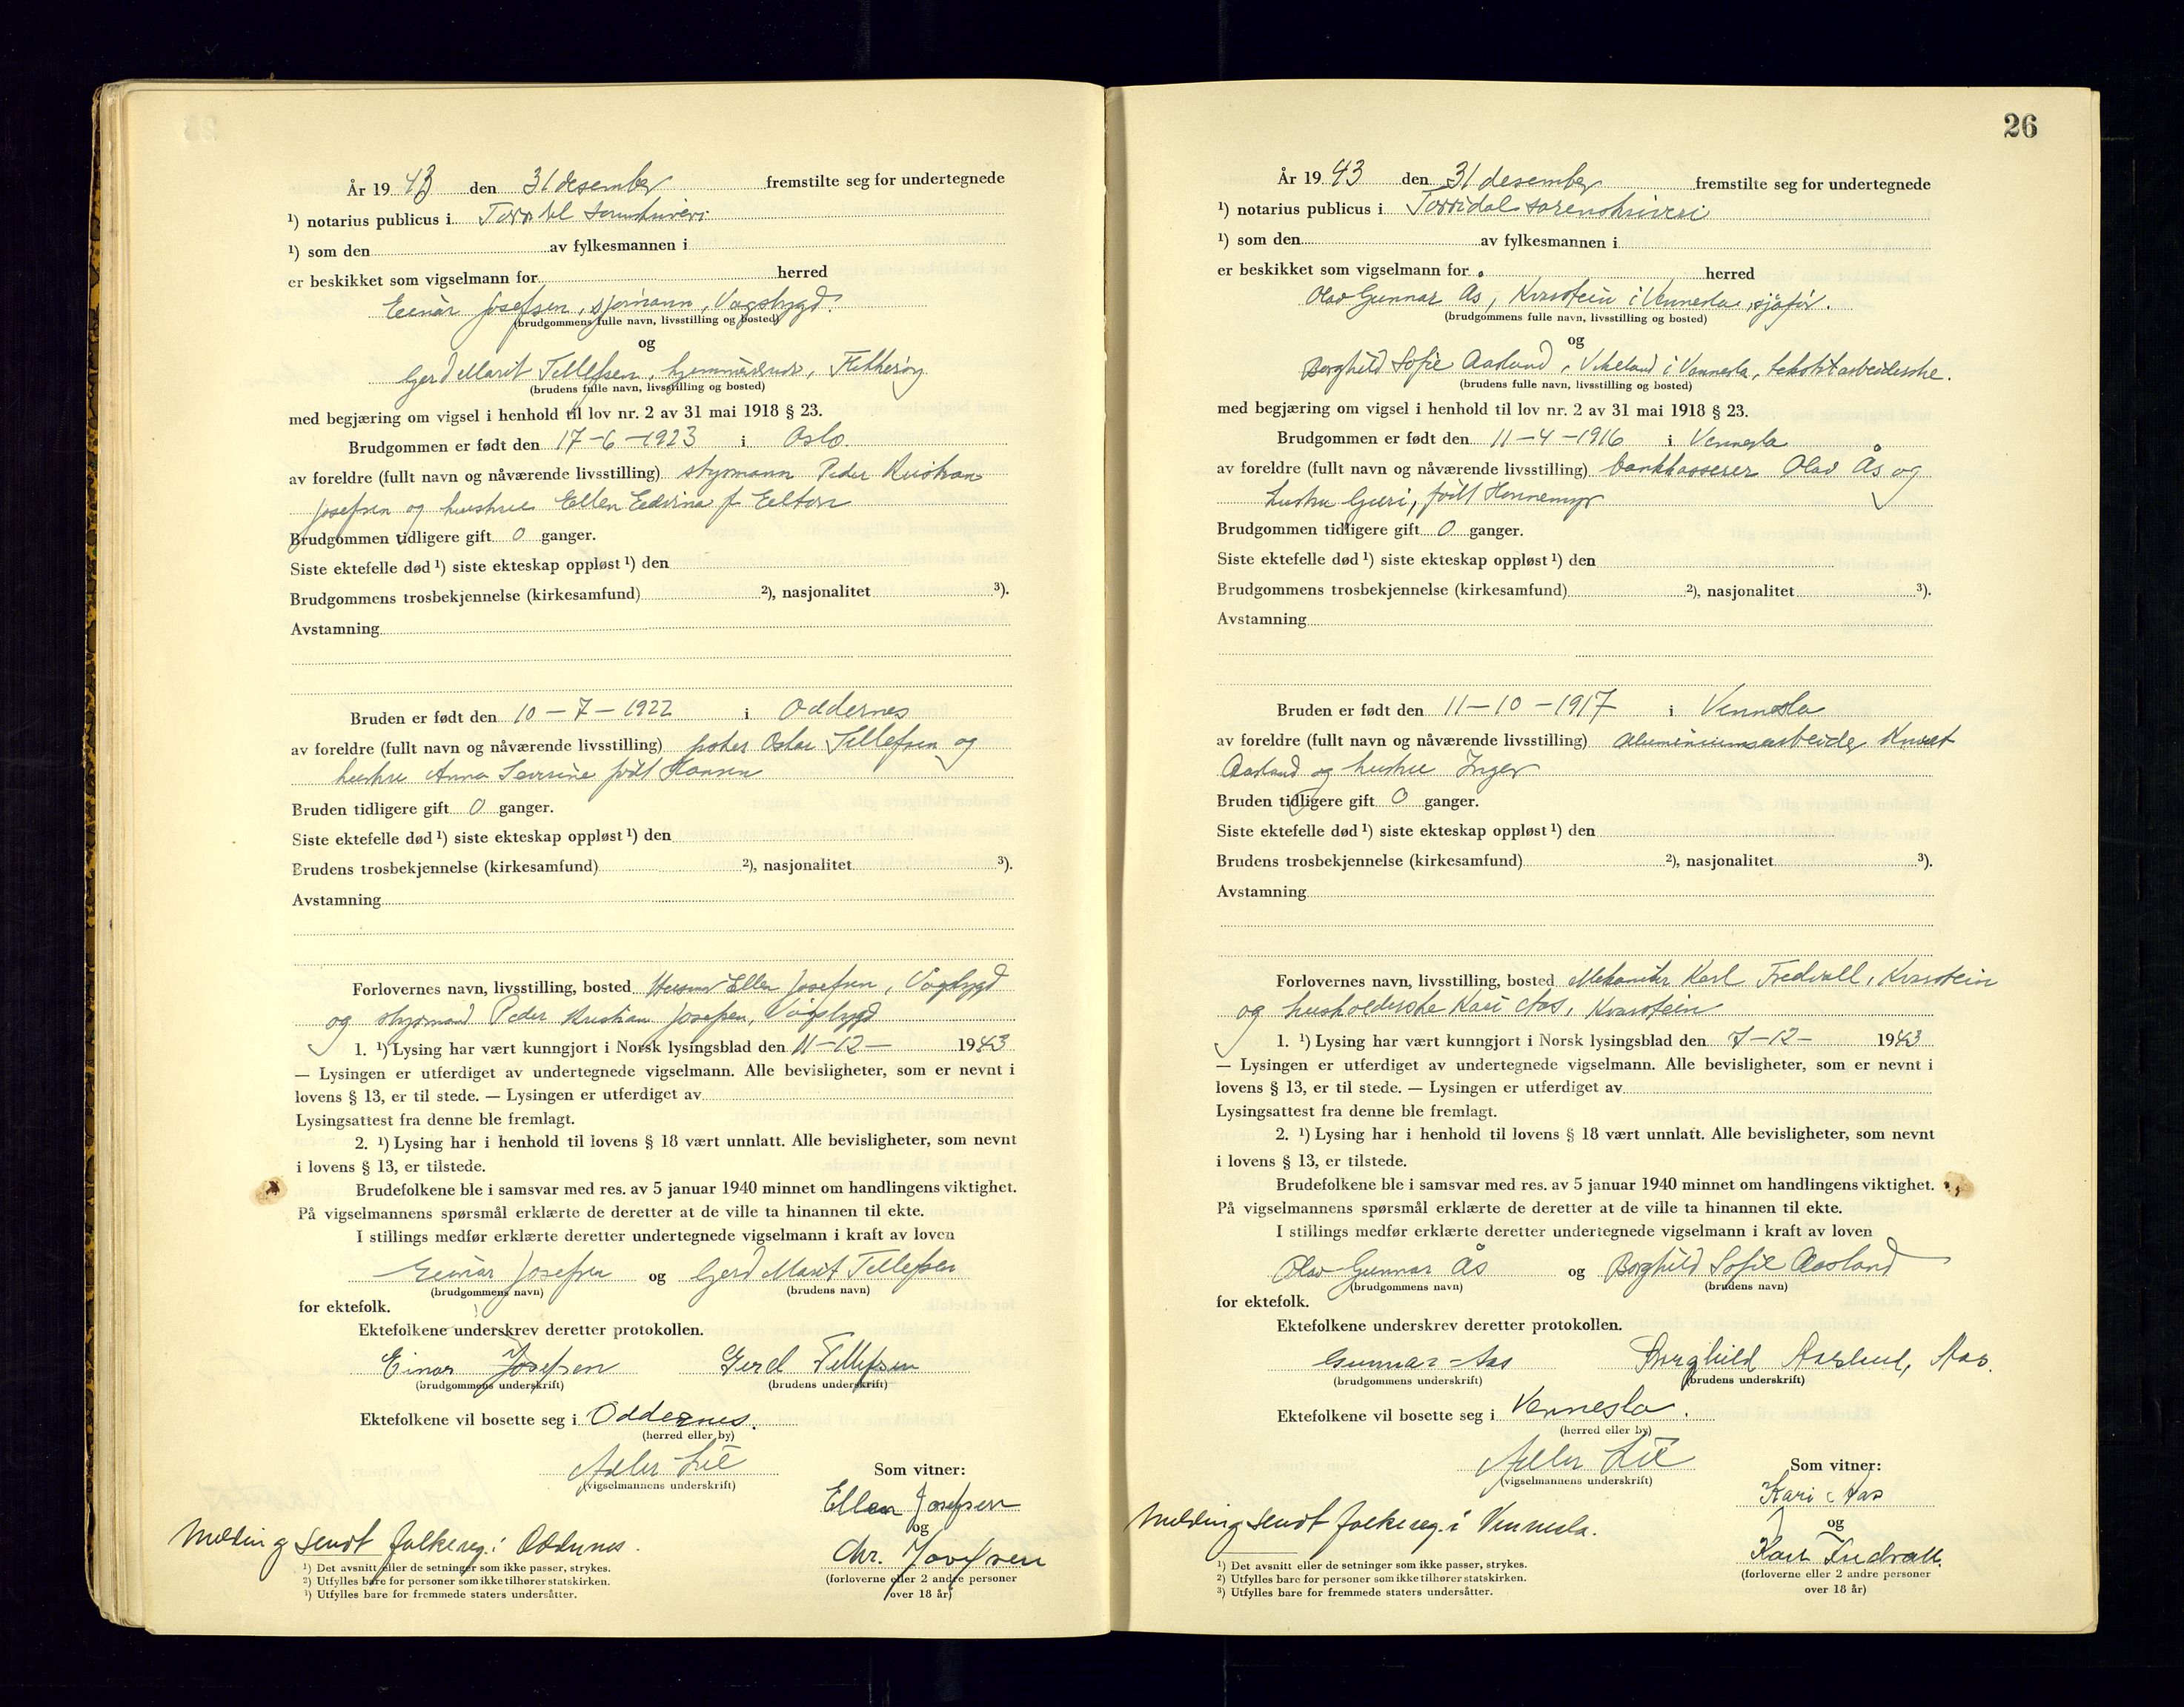 År 1943 den 31 desember fremstilte seg for undertegnede
¹) notarius publicus i Torridal sorenskriveri
¹) som den av fylkesmannen i
er beskikket som vigselmann for herred
Einar Josefsen, sjømann, Vågsbygd.
(brudgommens fulle navn, livsstilling og bosted)
og
Gerd Marit Tellefsen, hjemmeværende, Flekkerøy
(brudens fulle navn, livsstilling og bosted)
med begjæring om vigsel i henhold til lov nr. 2 av 31 mai 1918 § 23.
Brudgommen er født den 17-6-1923 i Oslo.
av foreldre (fullt navn og nåværende livsstilling) styrmann Peder Kristian
Josefsen og hustru Ellen Edvina f.
Brudgommen tidligere gift 0 ganger.
Siste ektefelle død ¹) siste ekteskap oppløst ¹) den
Brudgommens trosbekjennelse (kirkesamfund) ²), nasjonalitet ³).
Avstamning
Bruden er født den 10-7-1922 i Oddernes
av foreldre (fullt navn og nåværende livsstilling) fisker Oskar Tellefsen og
hustru Anna Severine født Hansen
Bruden tidligere gift 0 ganger.
Siste ektefelle død ¹) siste ekteskap oppløst ¹) den
Brudens trosbekjennelse (kirkesamfund) ²), nasjonalitet ³).
Avstamning
Forlovernes navn, livsstilling, bosted Ellen Josefsen, Vågsbygd
og styrmand Peder Kristian Josefsen, Vågsbygd
1. ¹) Lysing har vært kunngjort i Norsk lysingsblad den 11-12- 1943
— Lysingen er utferdiget av undertegnede vigselmann. Alle bevisligheter, som er nevnt i
lovens § 13, er til stede. — Lysingen er utferdiget av
Lysingsattest fra denne ble fremlagt.
2. ¹) Lysing har i henhold til lovens § 18 vært unnlatt. Alle bevisligheter, som nevnt
i lovens § 13, er tilstede.
Brudefolkene ble i samsvar med res. av 5 januar 1940 minnet om handlingens viktighet.
På vigselmannens spørsmål erklærte de deretter at de ville ta hinannen til ekte.
I stillings medfør erklærte deretter undertegnede vigselmann i kraft av loven
Einar Josefsen og Gerd Marit Tellefsen
(brudgommens navn) (brudens navn)
for ektefolk.
Ektefolkene underskrev deretter protokollen.
Einar Josefsen Gerd Tellefsen
(brudgommens underskrift) (brudens underskrift)
Ektefolkene vil bosette seg i Oddernes.
(herred eller by)
Adler Lie
(vigselmannens underskrift)
Som vitner:
Ellen Josefsen
og
Chr. Josefsen
(forloverne eller 2 andre personer
over 18 år)
Melding sendt folkereg. i Oddernes.
¹) Det avsnitt eller de setninger som ikke passer, strykes.
²) Utfylles bare for personer som ikke tilhører statskirken.
³) Utfylles bare for fremmede staters undersåtter.
26
År 1943 den 31 desember fremstilte seg for undertegnede
¹) notarius publicus i Torridal sorenskriveri
¹) som den av fylkesmannen i
er beskikket som vigselmann for herred
Olav Gunnar Ås, Kvarstein i Vennesla, sjåfør.
(brudgommens fulle navn, livsstilling og bosted)
og
Borghild Sofie Aasland, Vikeland i Vennesla, tekstilarbeiderske.
(brudens fulle navn, livsstilling og bosted)
med begjæring om vigsel i henhold til lov nr. 2 av 31 mai 1918 § 23.
Brudgommen er født den 11-4-1916 i Vennesla
av foreldre (fullt navn og nåværende livsstilling) bankkasserer Olav Ås og
hustru Guri, født Honnemyr
Brudgommen tidligere gift 0 ganger.
Siste ektefelle død ¹) siste ekteskap oppløst ¹) den
Brudgommens trosbekjennelse (kirkesamfund) ²), nasjonalitet ³).
Avstamning
Bruden er født den 11-10-1917 i Vennesla
av foreldre (fullt navn og nåværende livsstilling) aluminiumsarbeider Knut
Aasland og hustru Inger
Bruden tidligere gift 0 ganger.
Siste ektefelle død ¹) siste ekteskap oppløst ¹) den
Brudens trosbekjennelse (kirkesamfund) ²), nasjonalitet ³).
Avstamning
Forlovernes navn, livsstilling, bosted Mekaniker Karl Fredvall, Kvarstein
og husholderske Kari Aas, Kvarstein
1. ¹) Lysing har vært kunngjort i Norsk lysingsblad den 7-12- 1943
— Lysingen er utferdiget av undertegnede vigselmann. Alle bevisligheter, som er nevnt i
lovens § 13, er til stede. — Lysingen er utferdiget av
Lysingsattest fra denne ble fremlagt.
2. ¹) Lysing har i henhold til lovens § 18 vært unnlatt. Alle bevisligheter, som nevnt
i lovens § 13, er tilstede.
Brudefolkene ble i samsvar med res. av 5 januar 1940 minnet om handlingens viktighet.
På vigselmannens spørsmål erklærte de deretter at de ville ta hinannen til ekte.
I stillings medfør erklærte deretter undertegnede vigselmann i kraft av loven
Olav Gunnar Ås og Borghild Sofie Aasland
(brudgommens navn) (brudens navn)
for ektefolk.
Ektefolkene underskrev deretter protokollen.
Gunnar Aas Borghild Aaslund, Aas.
(brudgommens underskrift) (brudens underskrift)
Ektefolkene vil bosette seg i Vennesla.
(herred eller by)
Adler Lie
(vigselmannens underskrift)
Som vitner:
Kari Aas
og
Karl Fredvall.
(forloverne eller 2 andre personer
over 18 år)
Melding sendt folkereg. i Vennesla.
¹) Det avsnitt eller de setninger som ikke passer, strykes.
²) Utfylles bare for personer som ikke tilhører statskirken.
³) Utfylles bare for fremmede staters undersåtter.